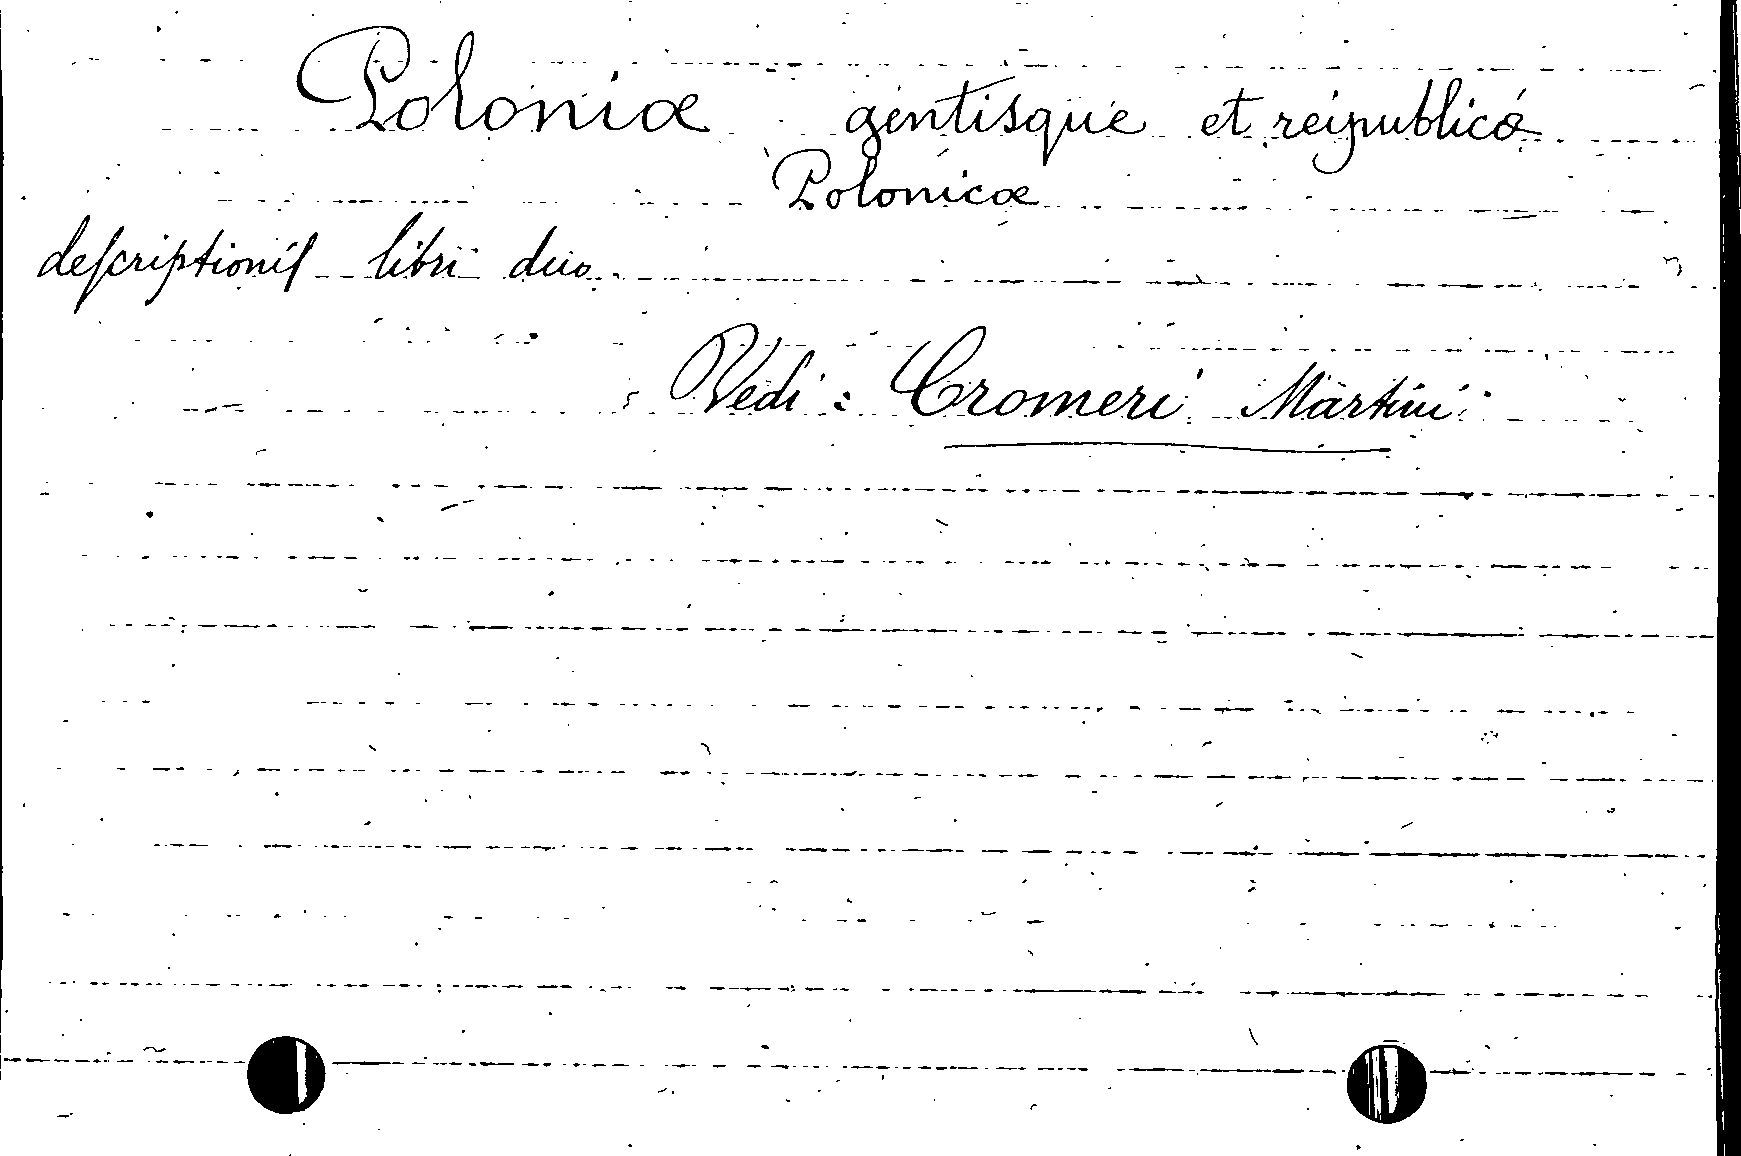 Poloniæ gentisque et reipublicæ
Polonicæ
deſcriptioniſ libri duo.
Vedi: Cromeri Martini